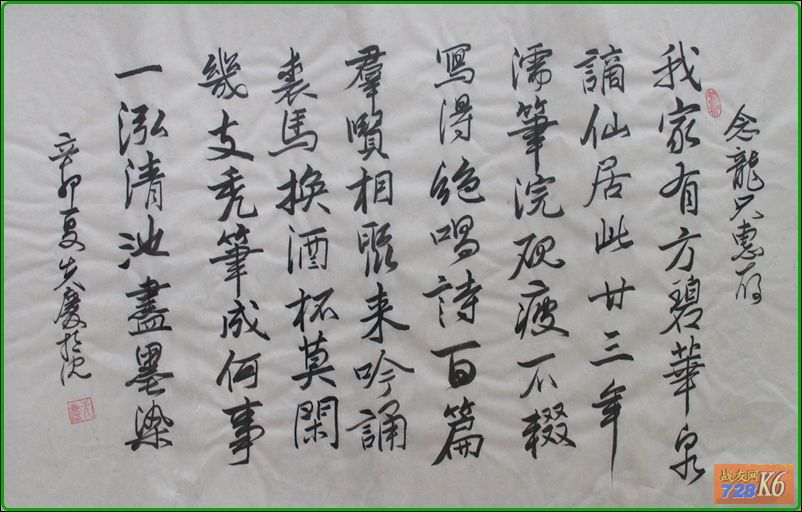 念龍兄惠存
我家有方碧華泉
謫仙居此廿三年
濡筆浣硯疲不輟
寫得絕唱詩百篇
羣賢相聚来吟誦
裘馬換酒杯莫閑
幾支秃筆成何事
一泓清池盡墨染
辛卯夏 慶於沈
战友网
728 K6